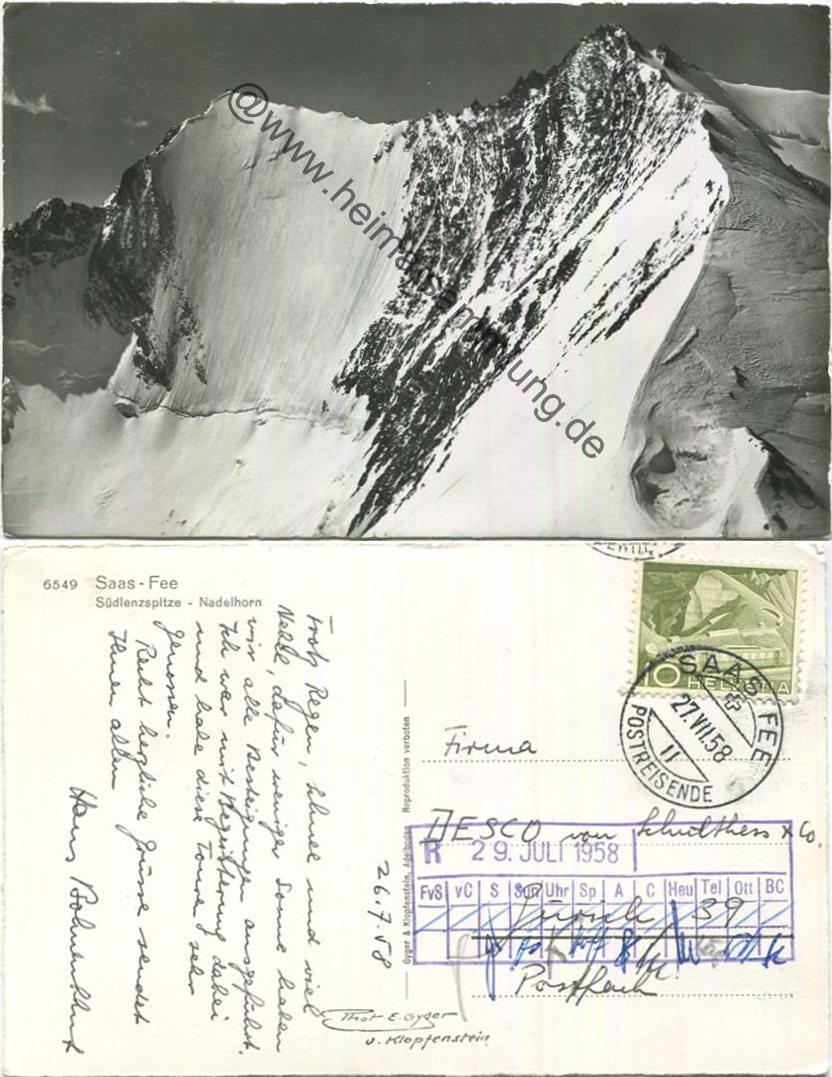 @www.heimatsammlung.de
6549 Saas-Fee
Südlenzspitze - Nadelhorn
Trotz Regen, Schnee und viel
Nebel, dafür weniger Sonne haben
wir alle Besteigungen ausgeführt.
Ich war mit Begeisterung dabei
und habe diese Touren sehr
genossen.
Recht herzliche Grüsse sendet
Ihnen allen
Hans
26.7.58
Gyger & Klopfenstein, Adelboden Reproduktion verboten
Phot E. Gyger
u. Klopfenstein
10 HELVETIA
SAAS FEE
27.VII.58
II
POSTREISENDE
Firma
DESCO von Schulthess & Co.
R 29. JULI 1958
FvS vC S Sun Uhr Sp A C Heu Tel Ott BC
Zürich 39
Postfach